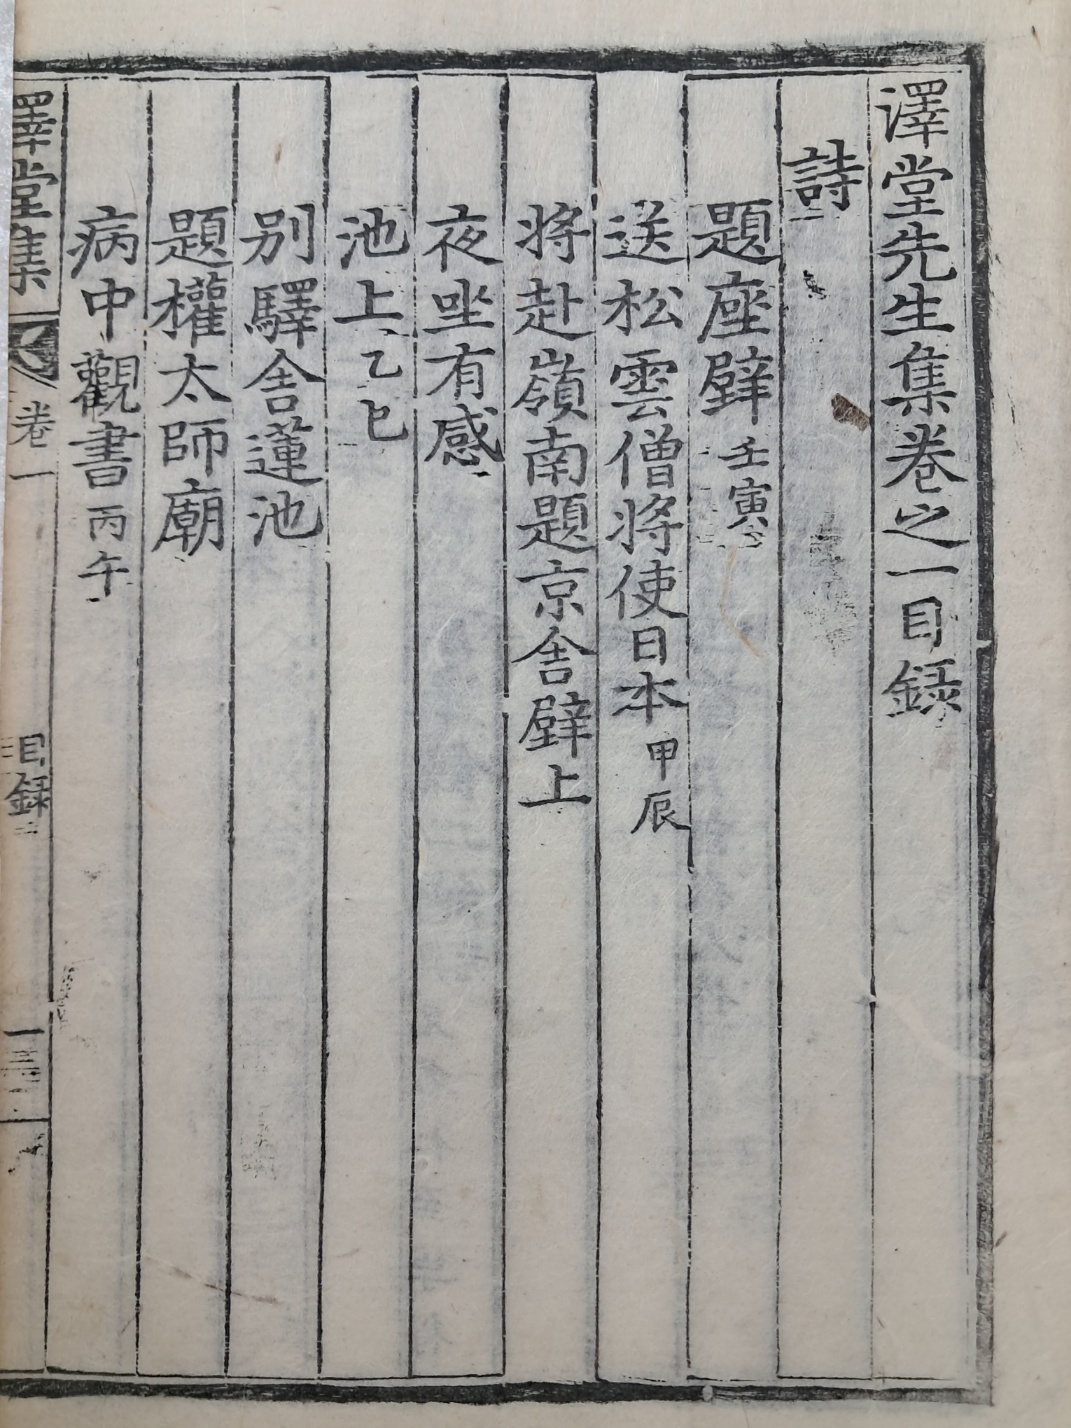 澤堂先生集卷之一目録
詩
題座壁 壬寅
送松雲僧將使日本 甲辰
將赴嶺南題京舍壁上
夜坐有感
池上 乙巳
別驛舍蓮池
題權太師廟
病中觀書 丙午
澤堂集 卷一 目録 一